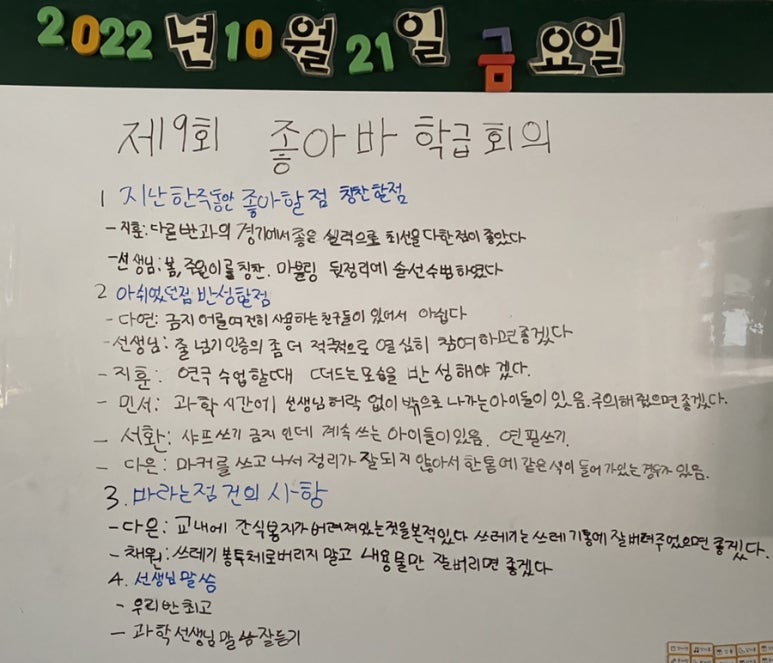 2022년10월21일 금요일
제19회 좋아바 학급회의
1 지난 한주동안 좋아할점 칭찬할점
-지훈: 다른반과의 경기에서 좋은 실력으로 최선을 다한점이 좋았다
-선생님: 봄, 주원이를 칭찬. 마블링 뒷정리에 솔선수범하였다
2 아쉬웠던점 반성할점
- 다연: 금지어를 여전히 사용하는 친구들이 있어서 아쉽다
- 선생님: 줄넘기인증의 좀 더 적극적으로 열심히 참여하면좋겠다
- 지훈: 연극 수업할때 떠드는모습을 반성해야겠다.
- 민서: 과학 시간에 선생님허락 없이 밖으로 나가는아이들이있음.주의해줬으면좋겠다.
- 서환: 샤프쓰기 금지인데 계속 쓰는 아이들이있음. 연필쓰기.
- 다은: 마커를 쓰고나서 정리가 잘되지 않아서 한통에 같은색이 들어가있는경우가 있음.
3. 바라는점 건의 사항
-다은: 교내에 간식봉지가버려져있는것을본적있다 쓰레기는쓰레기통에잘버려주었으면좋겠다.
-채원: 쓰레기 봉투체로버리지 말고 내용물만 잘버리면 좋겠다
4. 선생님말씀
- 우리반최고
- 과학선생님말씀잘듣기